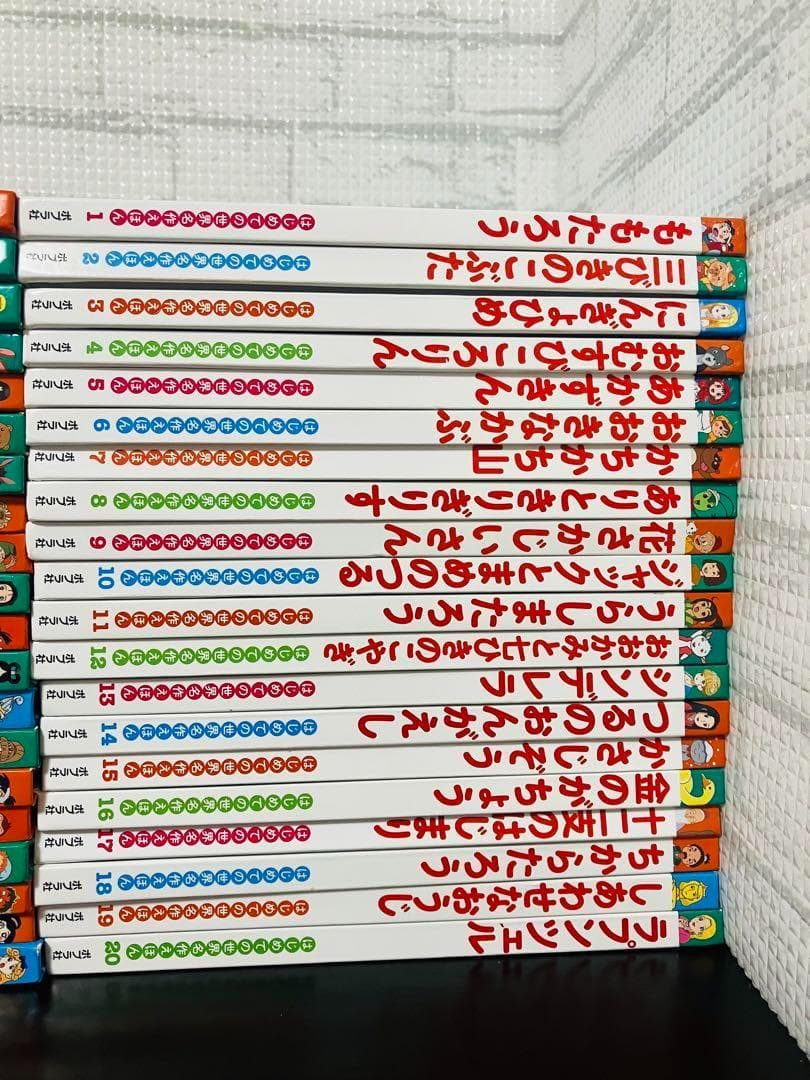 ももたろう はじめての世界名作えほん 1 ポプラ社
三びきのこぶた はじめての世界名作えほん 2 ポプラ社
にんぎょひめ はじめての世界名作えほん 3 ポプラ社
おむすびころりん はじめての世界名作えほん 4 ポプラ社
あかずきん はじめての世界名作えほん 5 ポプラ社
おおきなかぶ はじめての世界名作えほん 6 ポプラ社
かちかち山 はじめての世界名作えほん 7 ポプラ社
ありときりぎりす はじめての世界名作えほん 8 ポプラ社
花さかじいさん はじめての世界名作えほん 9 ポプラ社
ジャックとまめのつる はじめての世界名作えほん 10 ポプラ社
うらしまたろう はじめての世界名作えほん 11 ポプラ社
おおかみと七ひきのこやぎ はじめての世界名作えほん 12 ポプラ社
シンデレラ はじめての世界名作えほん 13 ポプラ社
つるのおんがえし はじめての世界名作えほん 14 ポプラ社
かさじぞう はじめての世界名作えほん 15 ポプラ社
金のがちょう はじめての世界名作えほん 16 ポプラ社
十二支のはじまり はじめての世界名作えほん 17 ポプラ社
ちからたろう はじめての世界名作えほん 18 ポプラ社
しあわせなおうじ はじめての世界名作えほん 19 ポプラ社
ラプンツェル はじめての世界名作えほん 20 ポプラ社